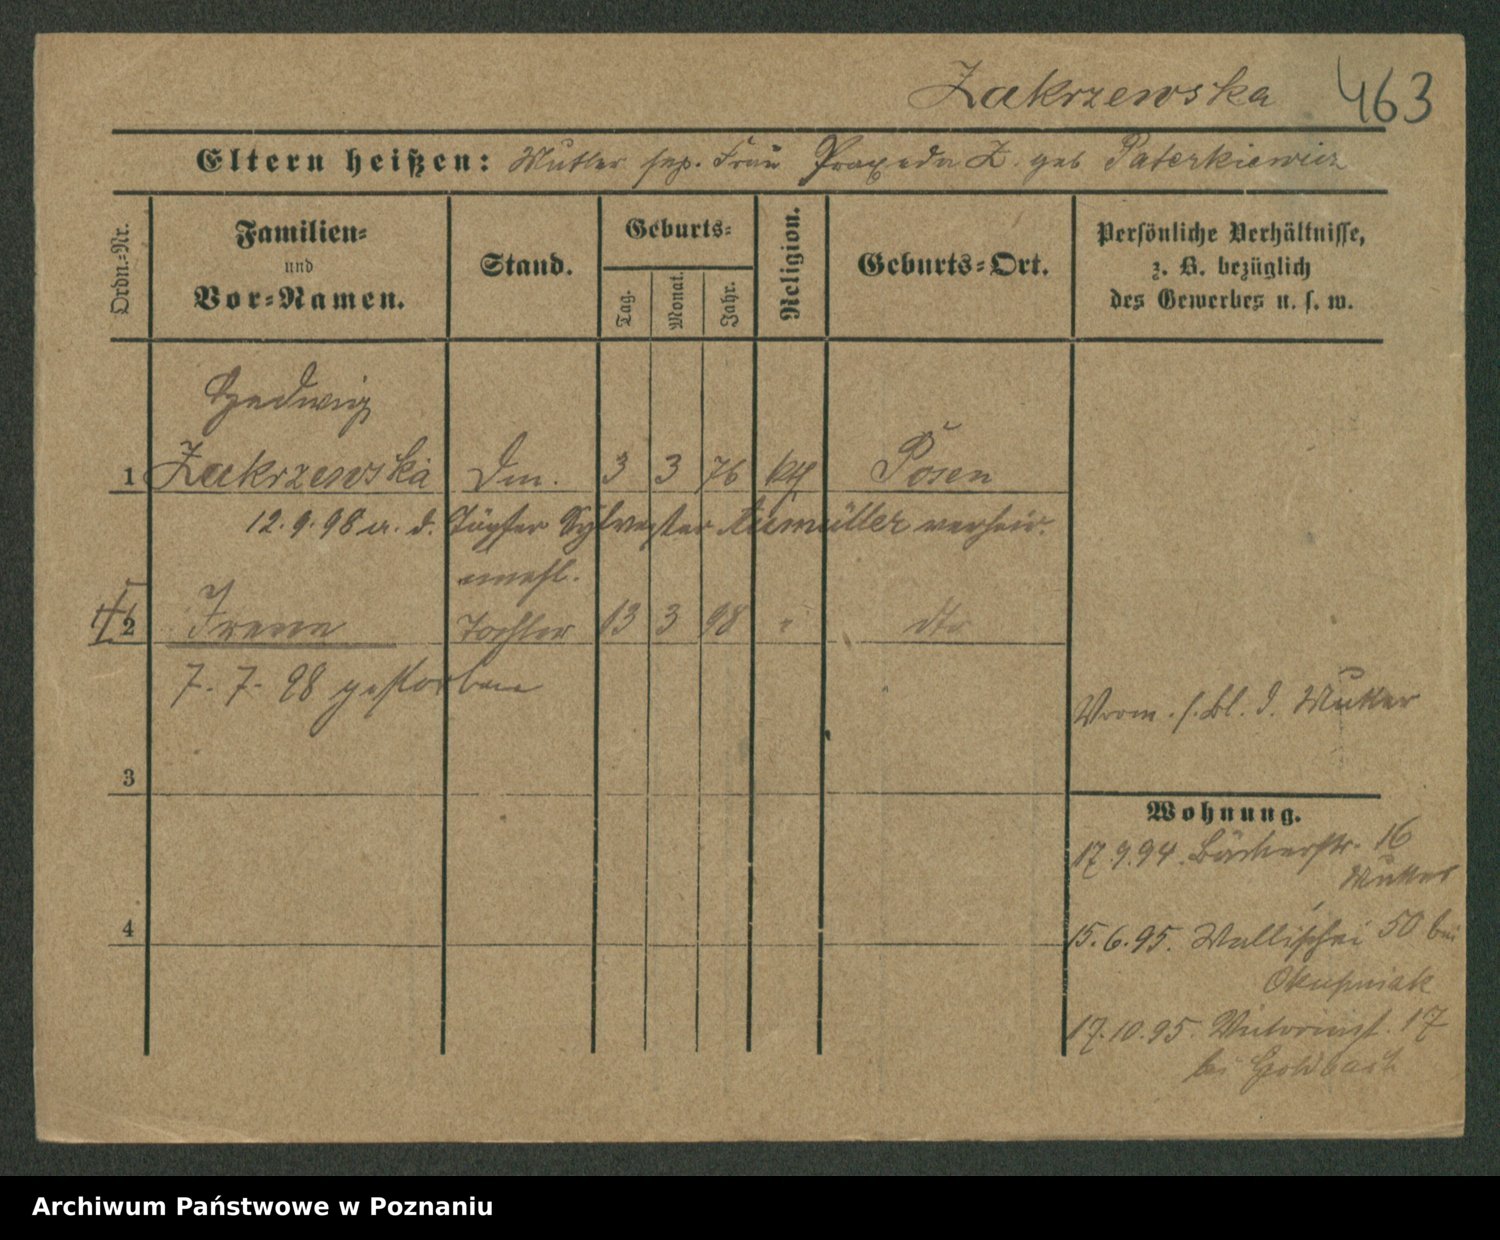 Zakrzewska 463
Eltern heißen: Mutter sep. Frau Praxeda Z. geb Paterkiewicz
Ordn.-Nr.
Familien-
und
Vor-Namen.
Stand.
Geburts-
Tag.
Monat.
Jahr.
Religion.
Geburts-Ort.
Persönliche Verhältnisse,
z. B. bezüglich
des Gewerbes u. s. w.
Hedwig
1 Zakrzewska 3 3 76 kth Posen
12.9.98 a. d. Töpfer Sylvester verheir.
unehl.
2 Irene Tochter 13 3 98 " dto
7. 7. 98 gestorben
Vrom. s. Bl. d. Mutter
3
Wohnung.
17.9.94. Bäckerstr. 16
Mutter
4
15.6.95. Wallischei 50 bei
Okupniak
17.10.95. Victoriast. 17
bei Goldbach
Archiwum Państwowe w Poznaniu